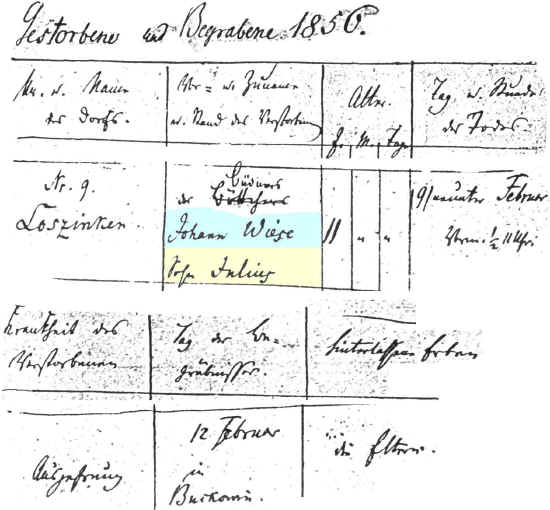 Gestorbene und Begrabene 1856.
Nr. u. Namen
des Dorfs.
Vor = u. Zunamen
u. Stand des Verstorbenen
Alter.
J. M. Tage
Tag u. Stunde
des Todes.
Nr. 9.
Loszinken
Büdners
des Böttchers
Johann Wiese
Sohn Julius
11 " "
9/ neunter Februar
Vorm. ½ 11 Uhr
Krankheit des
Verstorbenen
Tag der Be=
gräbnisses.
hinterlassene Erben
Auszehrung
12 Februar
in
Buckowin.
die Eltern.